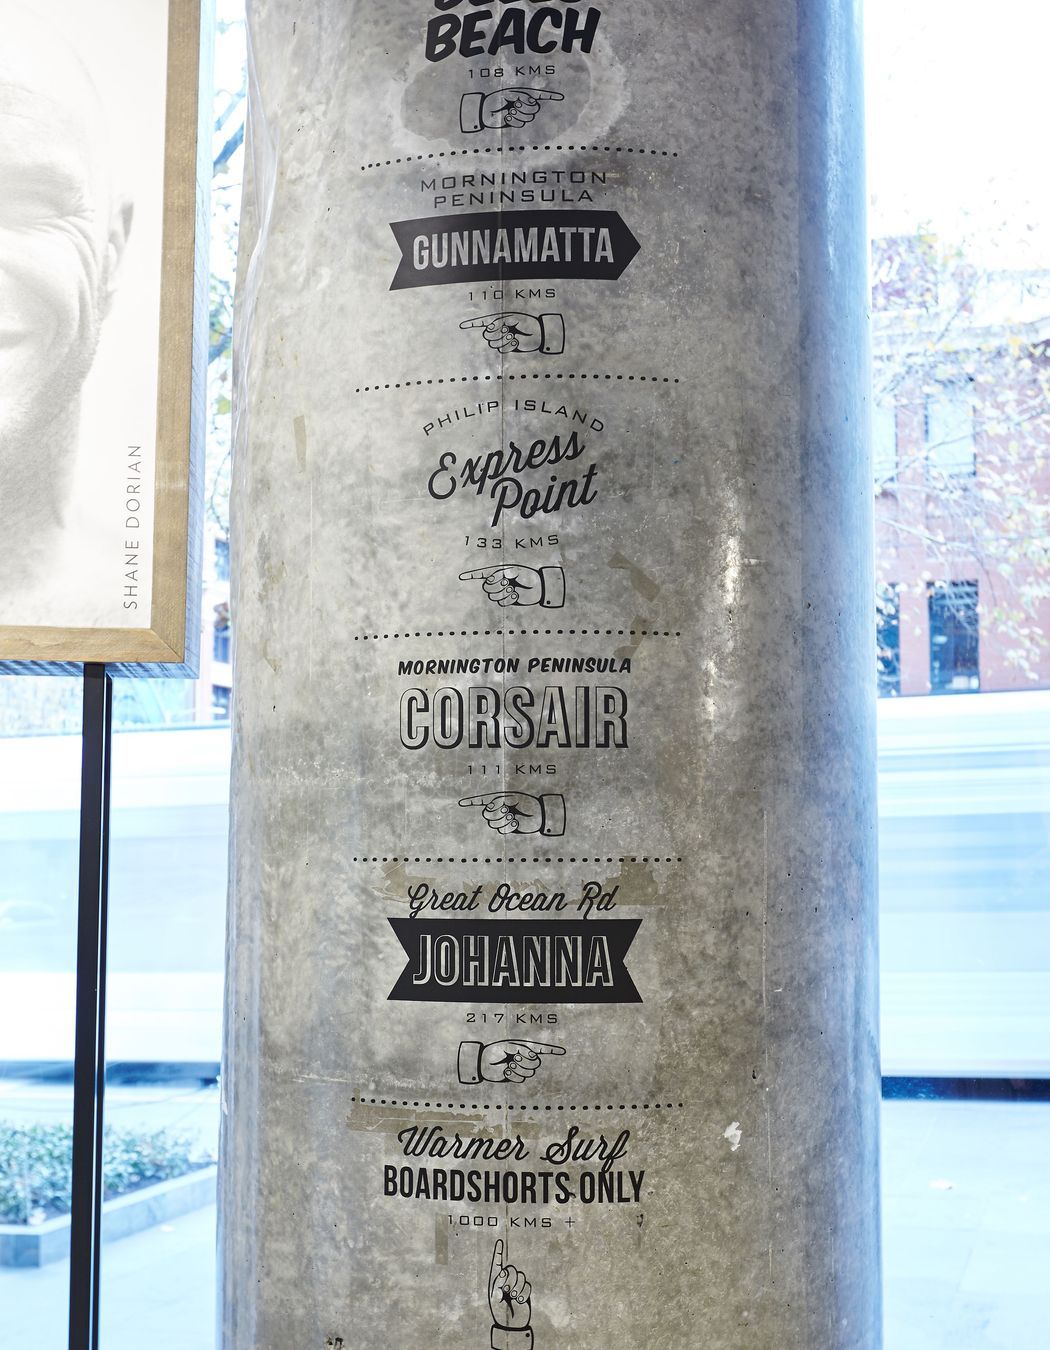 BEACH
108 KMS
MORNINGTON
PENINSULA
GUNNAMATTA
110 KMS
PHILIP ISLAND
Express
Point
133 KMS
MORNINGTON PENINSULA
CORSAIR
111 KMS
Great Ocean Rd
JOHANNA
217 KMS
Warmer Surf
BOARDSHORTS ONLY
1000 KMS +
SHANE DORIAN